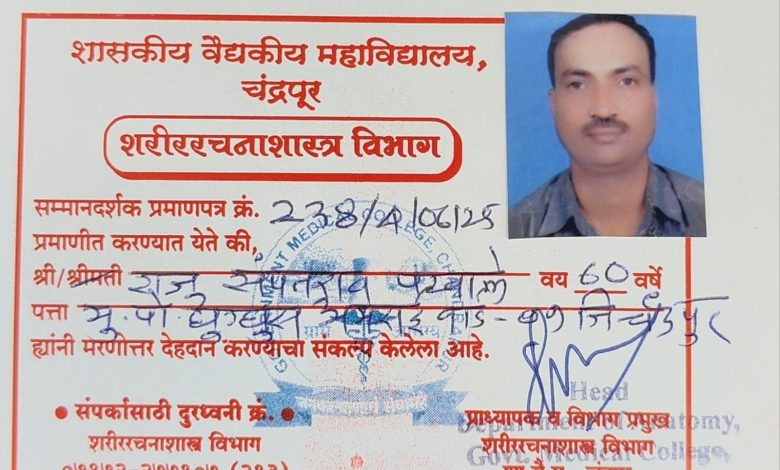 शासकीय वैद्यकीय महाविद्यालय,
चंद्रपूर
शरीररचनाशास्त्र विभाग
सम्मानदर्शक प्रमाणपत्र क्रं. 238/A/06/25
प्रमाणीत करण्यात येते की,
श्री/श्रीमती राजु संपतराव वय 60 वर्षे
पत्ता मु. पो. घुग्घुस वार्ड जि चंद्रपुर
ह्यांनी मरणोत्तर देहदान करण्याचा संकल्प केलेला आहे.
Head
• संपर्कासाठी दुरध्वनी क्रं. • प्राध्यापक व विभाग प्रमुख
Department of Anatomy,
शरीररचनाशास्त्र विभाग शरीररचनाशास्त्र विभाग
Govt. Medical College,